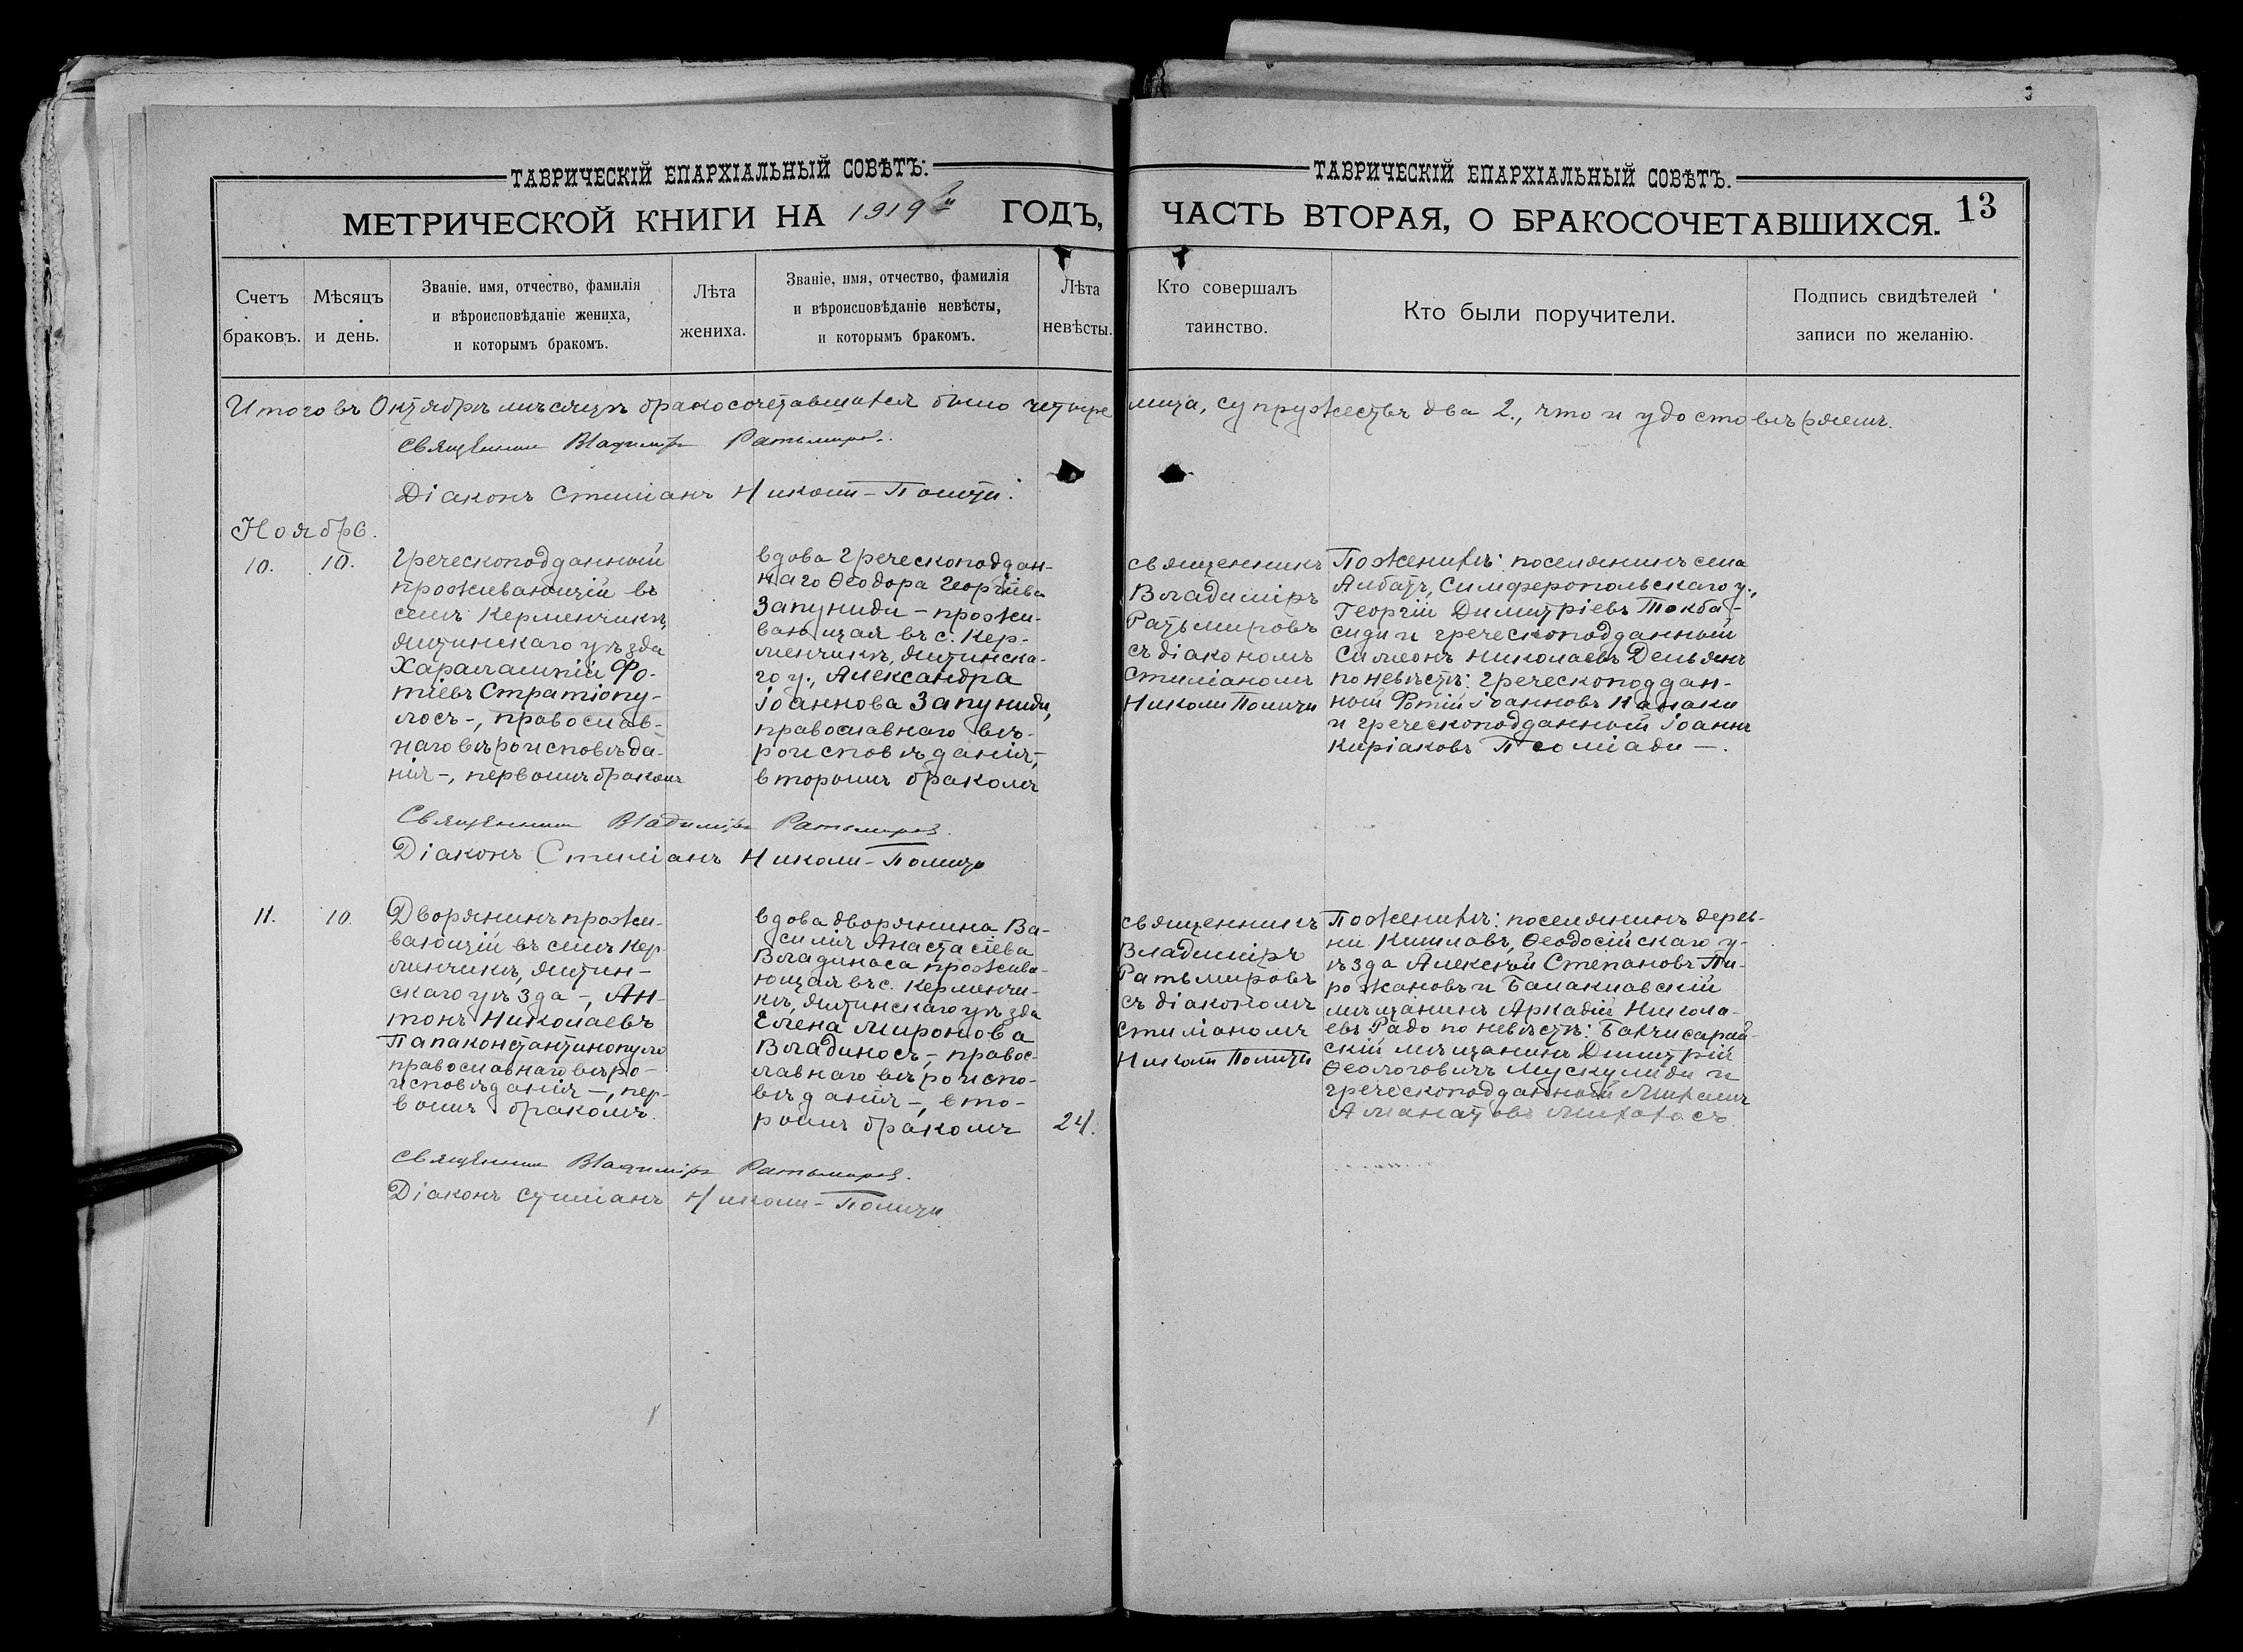 ТАВРИЧЕСКІЙ ЕПАРХІАЛЬНЫЙ СОВѢТЪ.
МЕТРИЧЕСКОЙ КНИГИ НА 1919й ГОДЪ,
Счетъ браковъ.
Мѣсяцъ и день.
Званіе, имя, отчество, фамилія
и вѣроисповѣданіе жениха,
и которымъ бракомъ.
Лѣта
жениха.
Званіе, имя, отчество, фамилія
и вѣроисповѣданіе невѣсты,
и которымъ бракомъ.
Лѣта
невѣсты.
ТАВРИЧЕСКІЙ ЕПАРХІАЛЬНЫЙ СОВѢТЪ.
ЧАСТЬ ВТОРАЯ, О БРАКОСОЧЕТАВШИХСЯ. 13
Кто совершалъ
таинство.
Кто были поручители.
Подпись свидѣтелей
записи по желанію.
Итого въ Октябрѣ мѣсяцѣ бракосочетавшихся было четыре лица, супружествъ два 2., что и удостовѣряемъ.
Священникъ Владиміръ Ратьмировъ.
Діаконъ Стиліанъ Николи-Полици.
Ноябрь.
10.
10.
Греческоподданный
проживающій въ
селѣ Керменчикѣ,
Ялтинскаго уѣзда
Харалампій Фо-
тіевъ Стратіопу-
лосъ-, православ-
наго вѣроисповѣда-
нія-, первымъ бракомъ
вдова греческоподдан-
наго Ѳеодора Георгіева
Запуниди - прожи-
вающая въ с. Кер-
менчикѣ, Ялтинска-
го у., Александра
Іоаннова Запуниди,
православнаго вѣ-
роисповѣданія-,
вторымъ бракомъ
священникъ
Владиміръ
Ратьмировъ
съ діакономъ
Стиліаномъ
Николи Полици
По женихѣ: поселянинъ села
Албатъ, Симферопольскаго у.,
Георгій Димитріевъ Токба-
сиди и греческоподданный
Симеонъ Николаевъ Дельянъ
по невѣстѣ: греческоподдан-
ный Фотій Іоанновъ Канаки
и греческоподданный Іоаннъ
Киріаковъ Псоміади —.
Священникъ Владиміръ Ратьмировъ.
Діаконъ Стиліанъ Николи-Полици
11.
10.
Дворянинъ прожи-
вающій въ селѣ Кер-
менчикѣ, Ялтин-
скаго уѣзда -, Ан-
тонъ Николаевъ
Папаконстантинопуло
православнаго вѣро-
исповѣданія -, пер-
вымъ бракомъ.
вдова дворянина Ва-
силія Анастасіева
Владиноса прожива-
ющая въ с. Керменчи-
кѣ, Ялтинскаго уѣзда
Елена Миронова
Владиносъ-, правос-
лавнаго вѣроиспо-
вѣданія -, вто-
рымъ бракомъ
24.
священникъ
Владиміръ
Ратьмировъ
съ діакономъ
Стиліаномъ
Николи Полици
По женихѣ: поселянинъ дерев-
ни Кишлавъ, Ѳеодосійскаго у-
ѣзда Алексѣй Степановъ Пи-
рожановъ и Балаклавскій
мѣщанинъ Аркадій Никола-
евъ Радо по невѣстѣ: Бахчисарай-
скій мѣщанинъ Димитрій
Ѳеологовичъ Мускулиди и
греческоподданный Михаилъ
Аманатовъ Михохосъ.
Священникъ Владиміръ Ратьмировъ.
Діаконъ Стиліанъ Николи-Полици